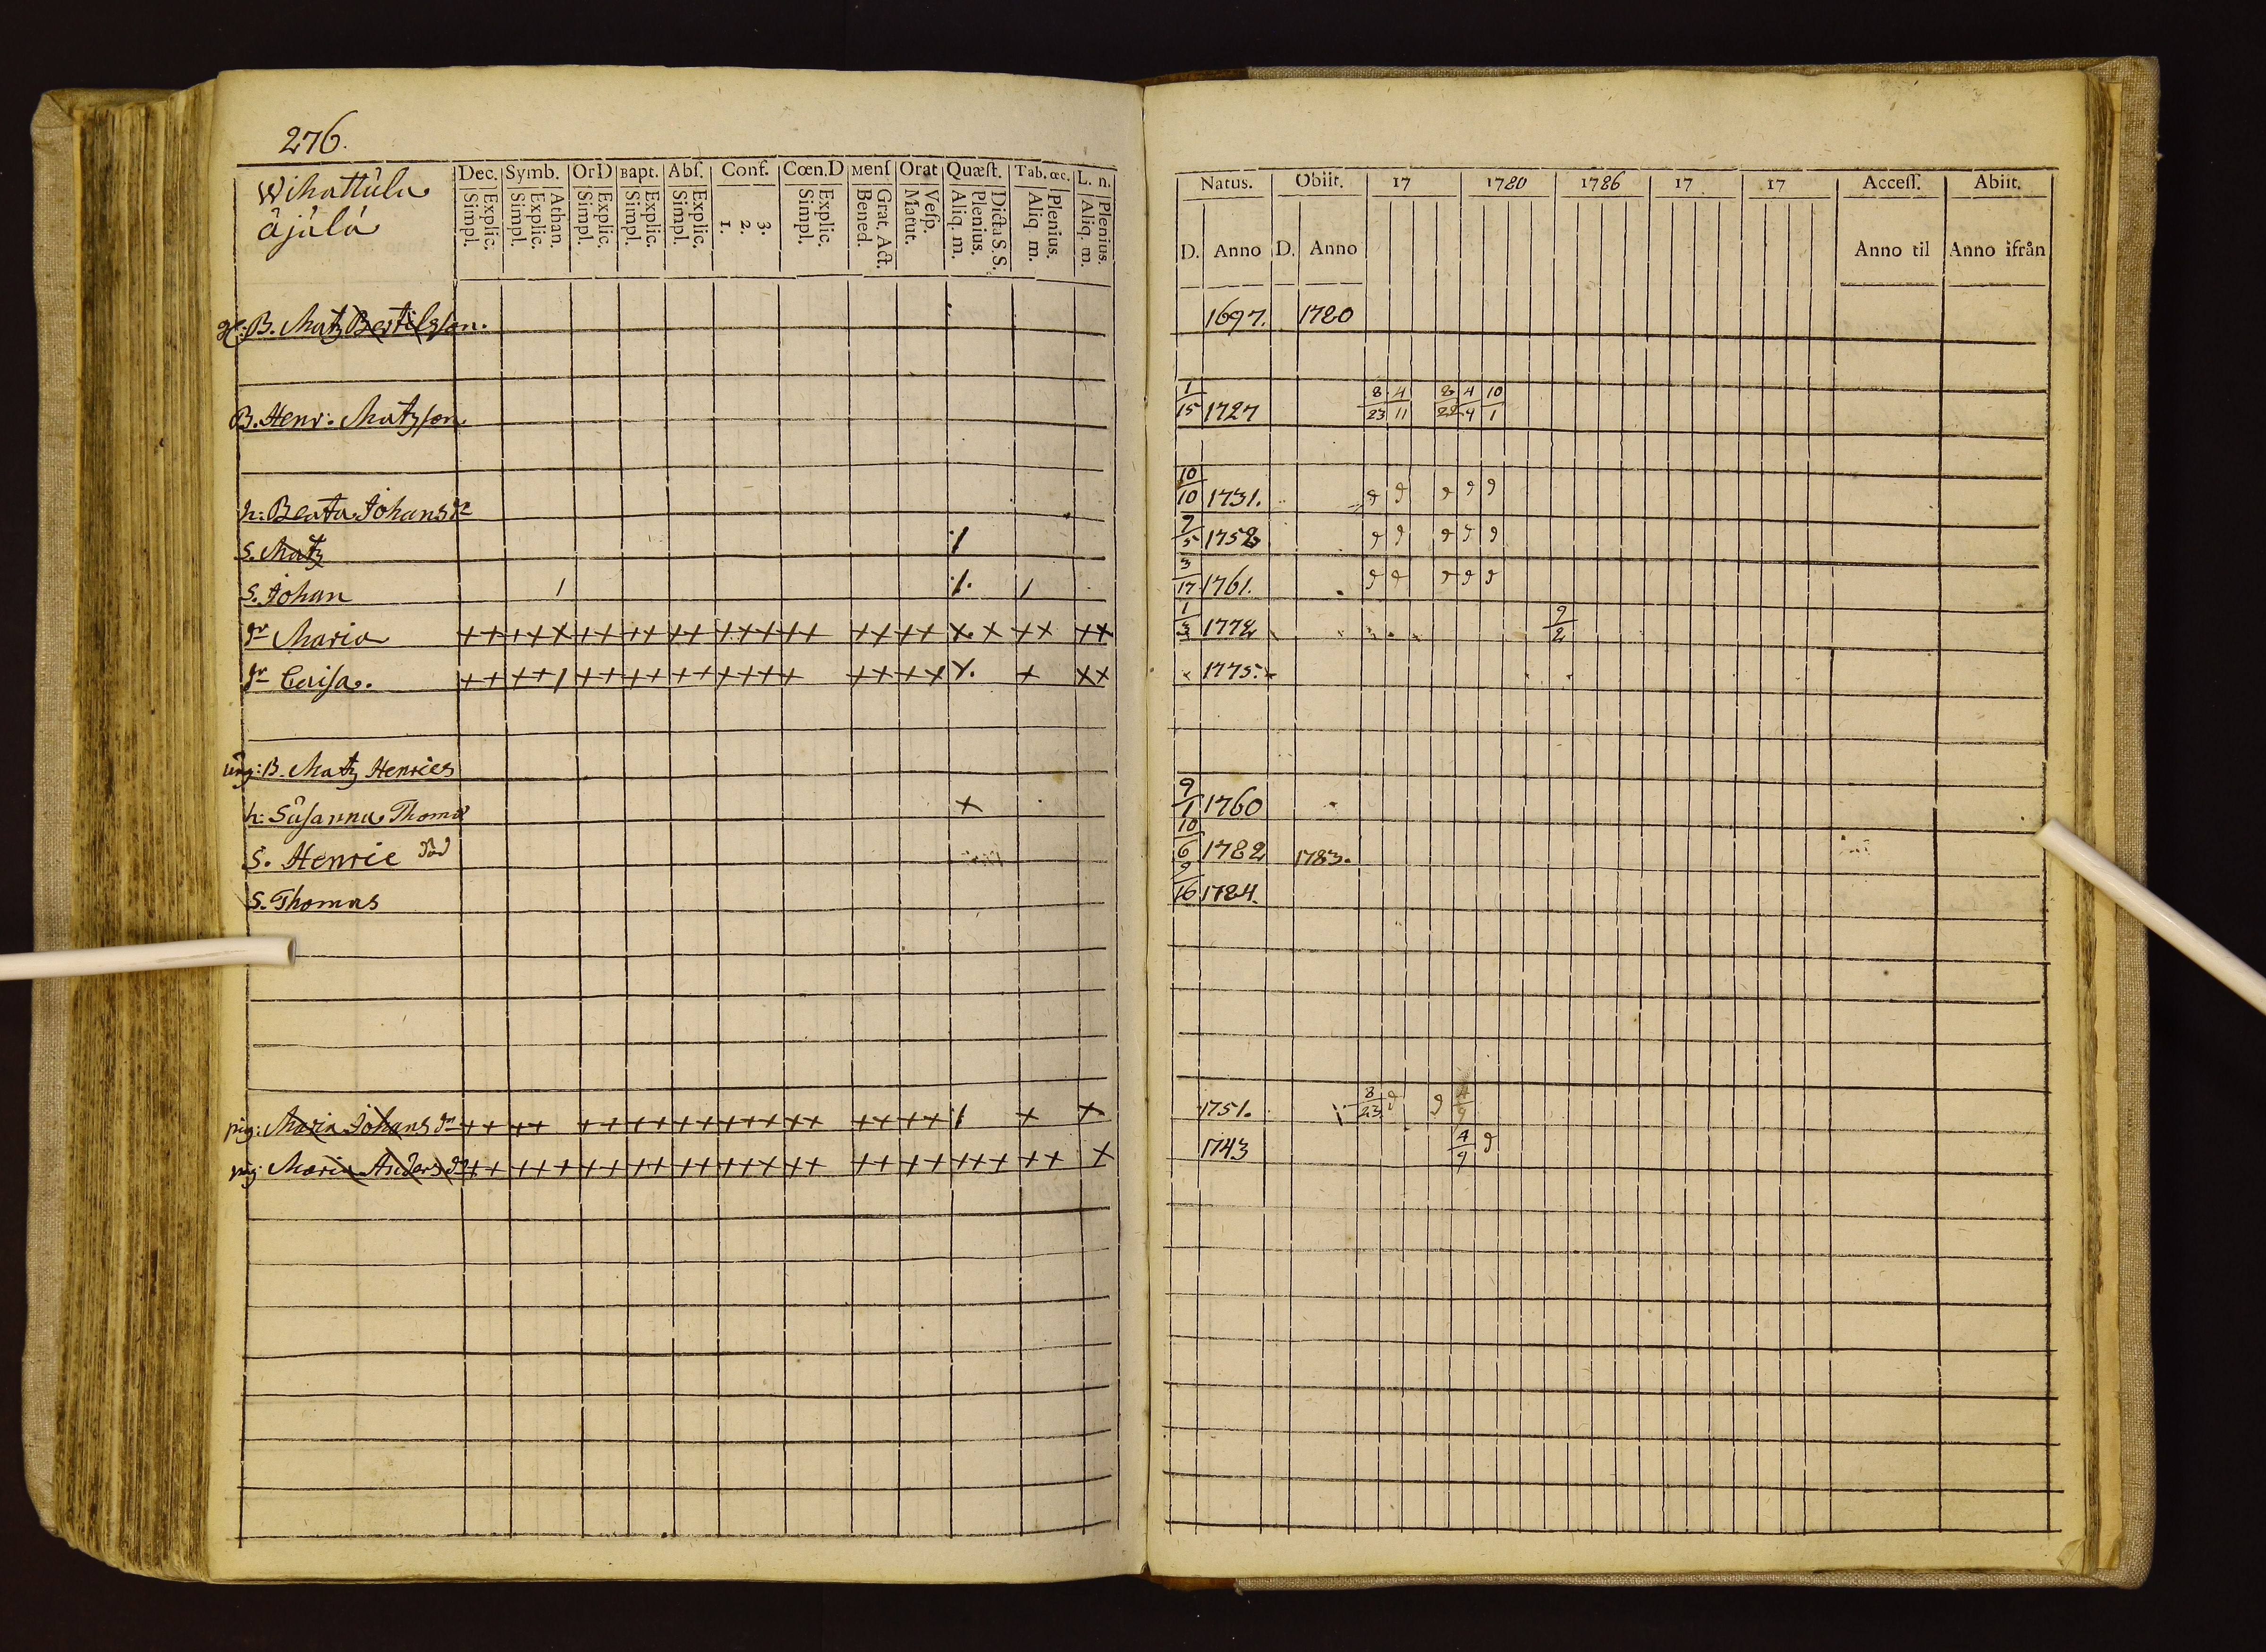 276.
Wihattula
Äjälä
Dec. Symb. OrD Bapt. Abſ. Conf. Cœn.D Menſ Orat Quæſt. Tab. œc. L. n.
Explic. Simpl. Athan. Explic. Simpl. Explic. Simpl. Explic. Simpl. Explic. Simpl. 3. 2. 1. Explic. Simpl. Grat. Act. Bened. Veſp. Matut. Dicta S. S. Plenius. Aliq. m. Plenius. Aliq. m. Plenius. Aliq. m.
Natus. Obiit. 17 1780 1786 17 17 Acceſſ. Abiit.
D. Anno D. Anno Anno til Anno ifrån
B. Matz Bertilsson. 1697. 1780
B. Henr: Matzson 1/15 1727 8/23 4/11 8/22 4/4 10/1
h: Beata Johans dr 10/10 1731.
S. Matz 1758
S. Johan 3/17 1761.
dr Maria + + + + + + + + + + + + + + + + + + + + + + + + + + 1/3 1772 9/2
dr Caisa. + + + + / + + + + + + + + + + + + + + + + + + 1775.
ung: B. Matz Henrics
h: Susanna Thomæ + 9/1 1760
S. Henric död 10/6 1782 1783.
S. Thomas 9/16 1784.
pig: Maria Johans dr + + + + + + + + + + + + + + + + + + / + + 1751. 8/23
pig: Maria Anders dr + + + + + + + + + + + + + + + + + + + + + + + + + 1743 4/9